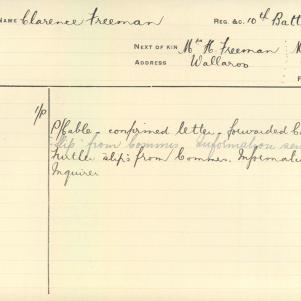 NAME Clarence Freeman REG. &C. 10th Batt
NEXT OF KIN Mrs H. Freeman
ADDRESS Wallaroo
1/P
P/Cable - confirmed letter - forwarded
slip from Commrs. Information
Further slips from Commrs.
Inquirer